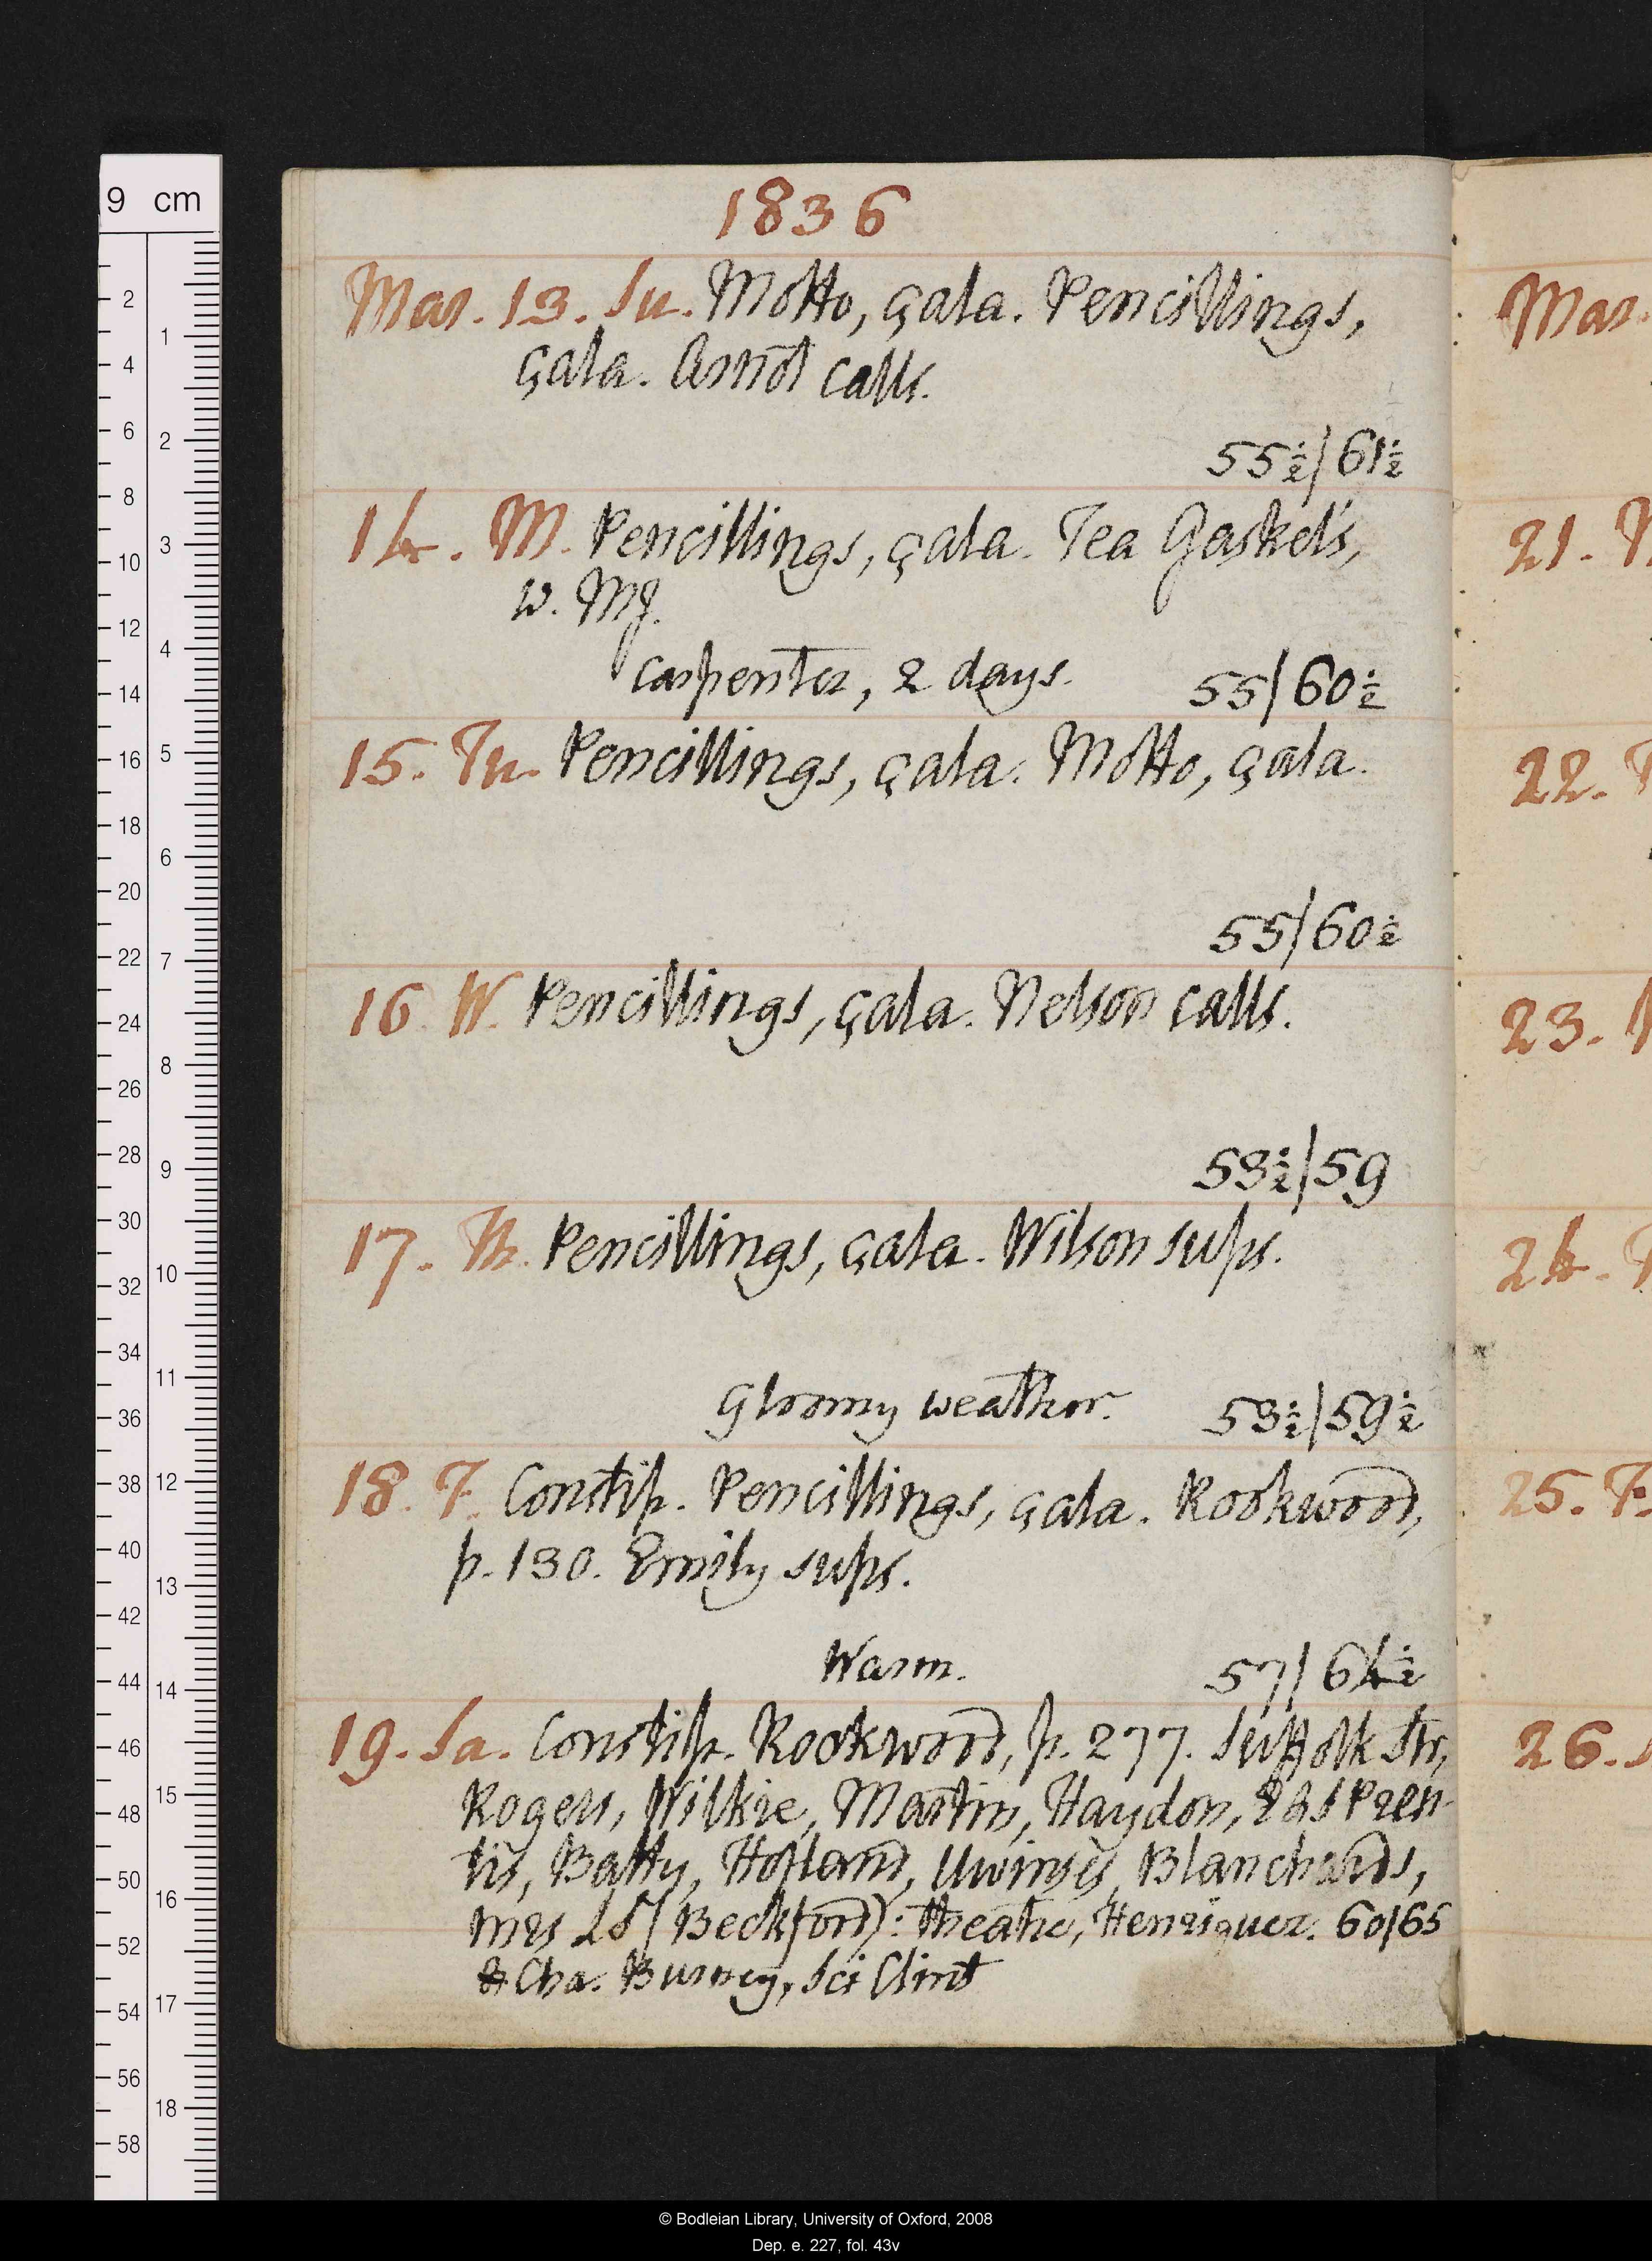 1836
Mar. 13. Su. Motto, çala. Pencillings,
çala. Arnot calls.
55½/61½
14. M. Pencillings, çala. Tea Gaskel's,
w. MJ.
Carpenter, 2 days. 55/60½
15. Tu. Pencillings, çala. Motto, çala.
55/60½
16. W. Pencillings, çala. Nelson calls.
53½/59
17. Th. Pencillings, çala. Wilson sups.
Gloomy weather. 53½/59½
18. F. Constip. Pencillings, çala. Rookwood,
p. 130. Emily sups.
Warm. 57/64½
19. Sa. Constip. Rookwood, p. 277. Suffolk Str,
Rogers, Wilkie, Martin, Haydon, Ed Pren-
tis, Batty, Hofland, Uwinses, Blanchards,
mrs LS (Beckford): theatre, Henriquez. 60/65
& Cha. Burney, sci Clint
Mar.
21.
22.
23.
24.
25. F.
26.
9 cm
2
4
6
8
10
12
14
16
18
20
22
24
26
28
30
32
34
36
38
40
42
44
46
48
50
52
54
56
58
1
2
3
4
5
6
7
8
9
10
11
12
13
14
15
16
17
18
© Bodleian Library, University of Oxford, 2008
Dep. e. 227, fol. 43v